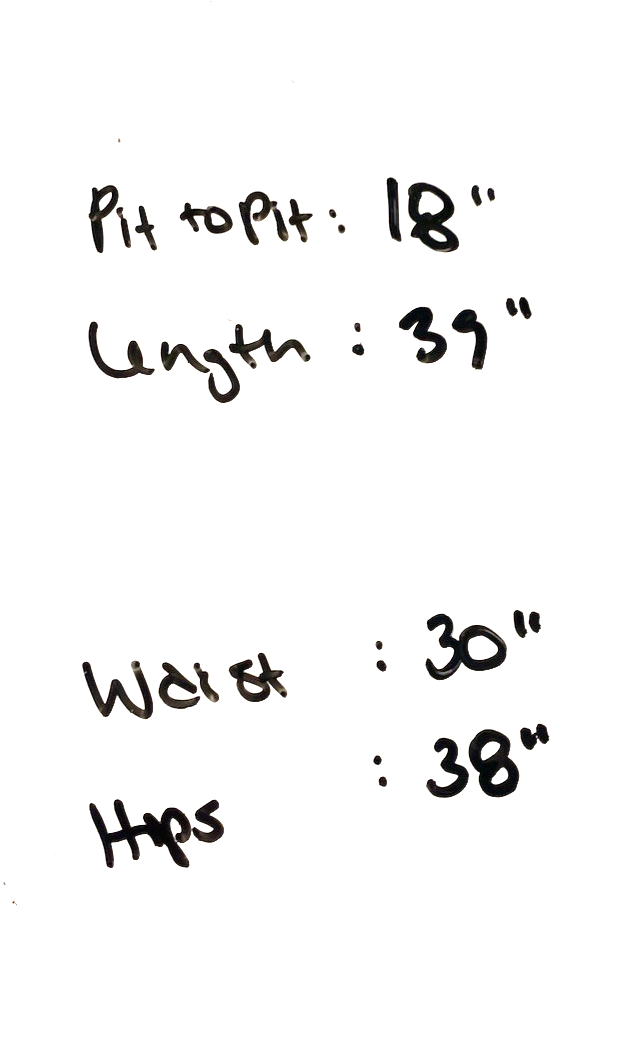 Pit to Pit: 18"
Length : 39"
Waist : 30"
Hips : 38"